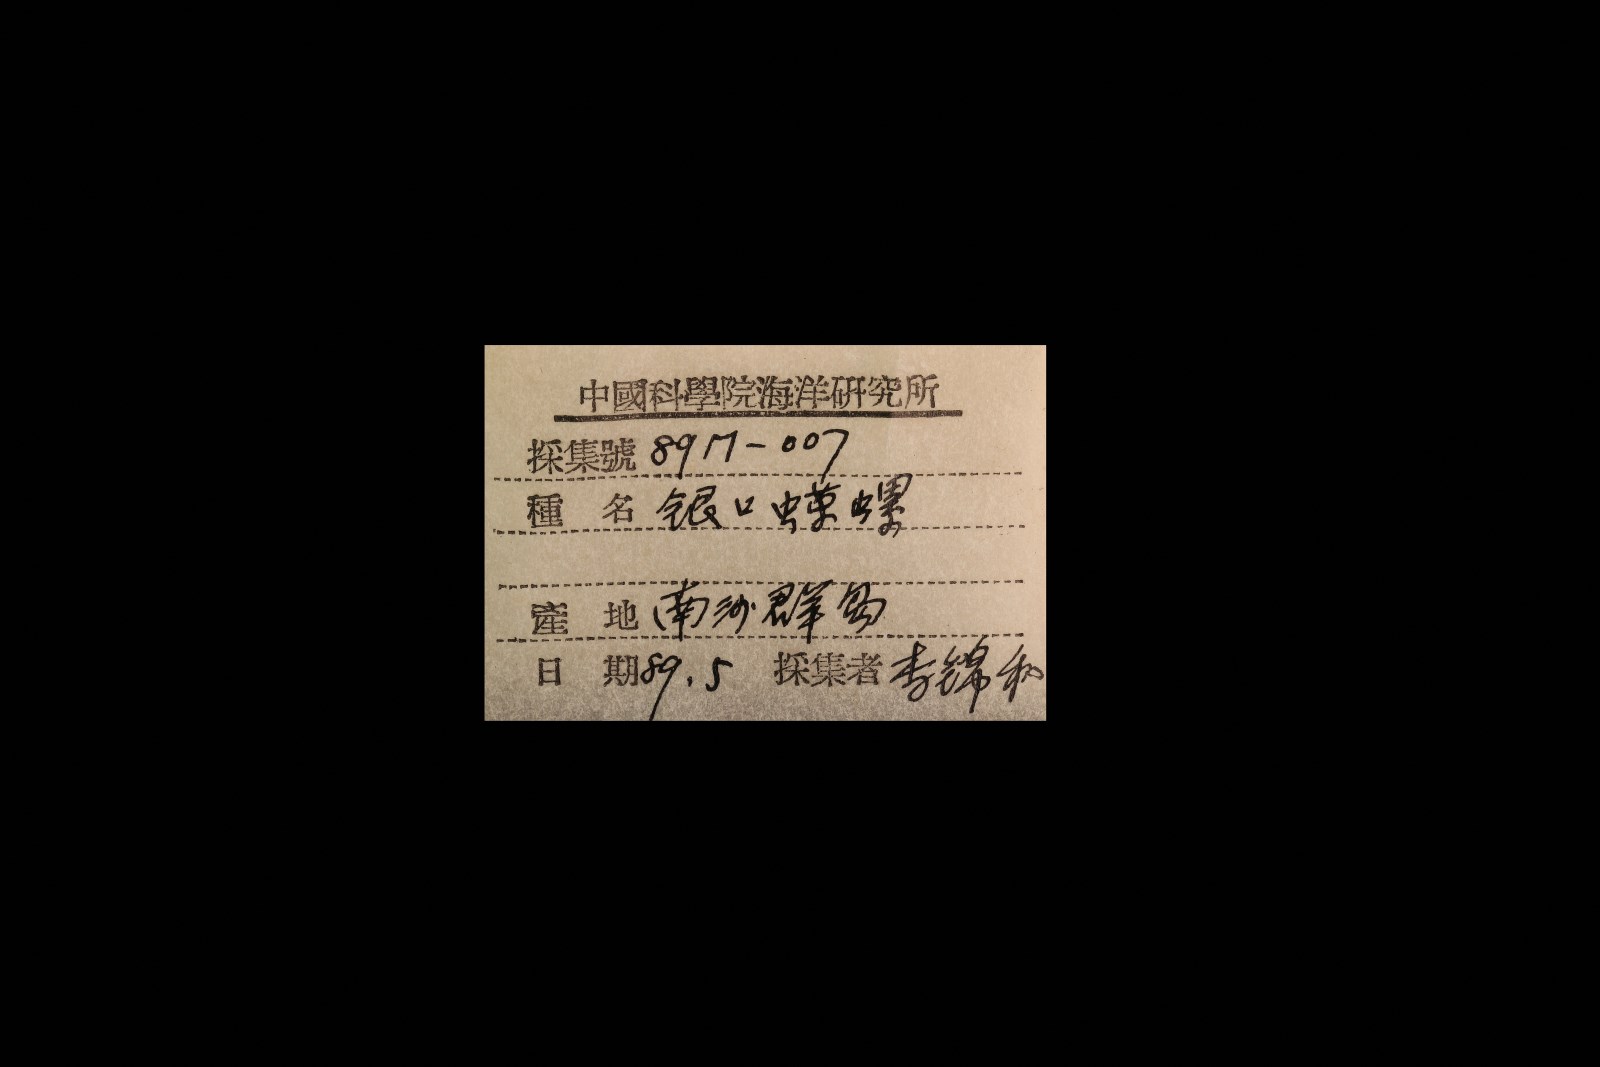 中國科學院海洋研究所
採集號 89M-007
種 名 银口蝾螺
產 地 南沙群岛
日 期 89.5 採集者 李锦和